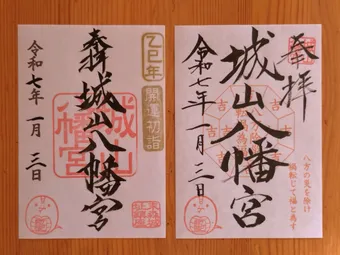 奉拝
乙巳年
開運初詣
城山八幡宮
城山
八幡宮
令和七年
一月三日
奉拝
城山八幡宮
吉
吉
吉
吉
吉
八方の災を除け
禍転じて福と為す
令和七年
一月三日